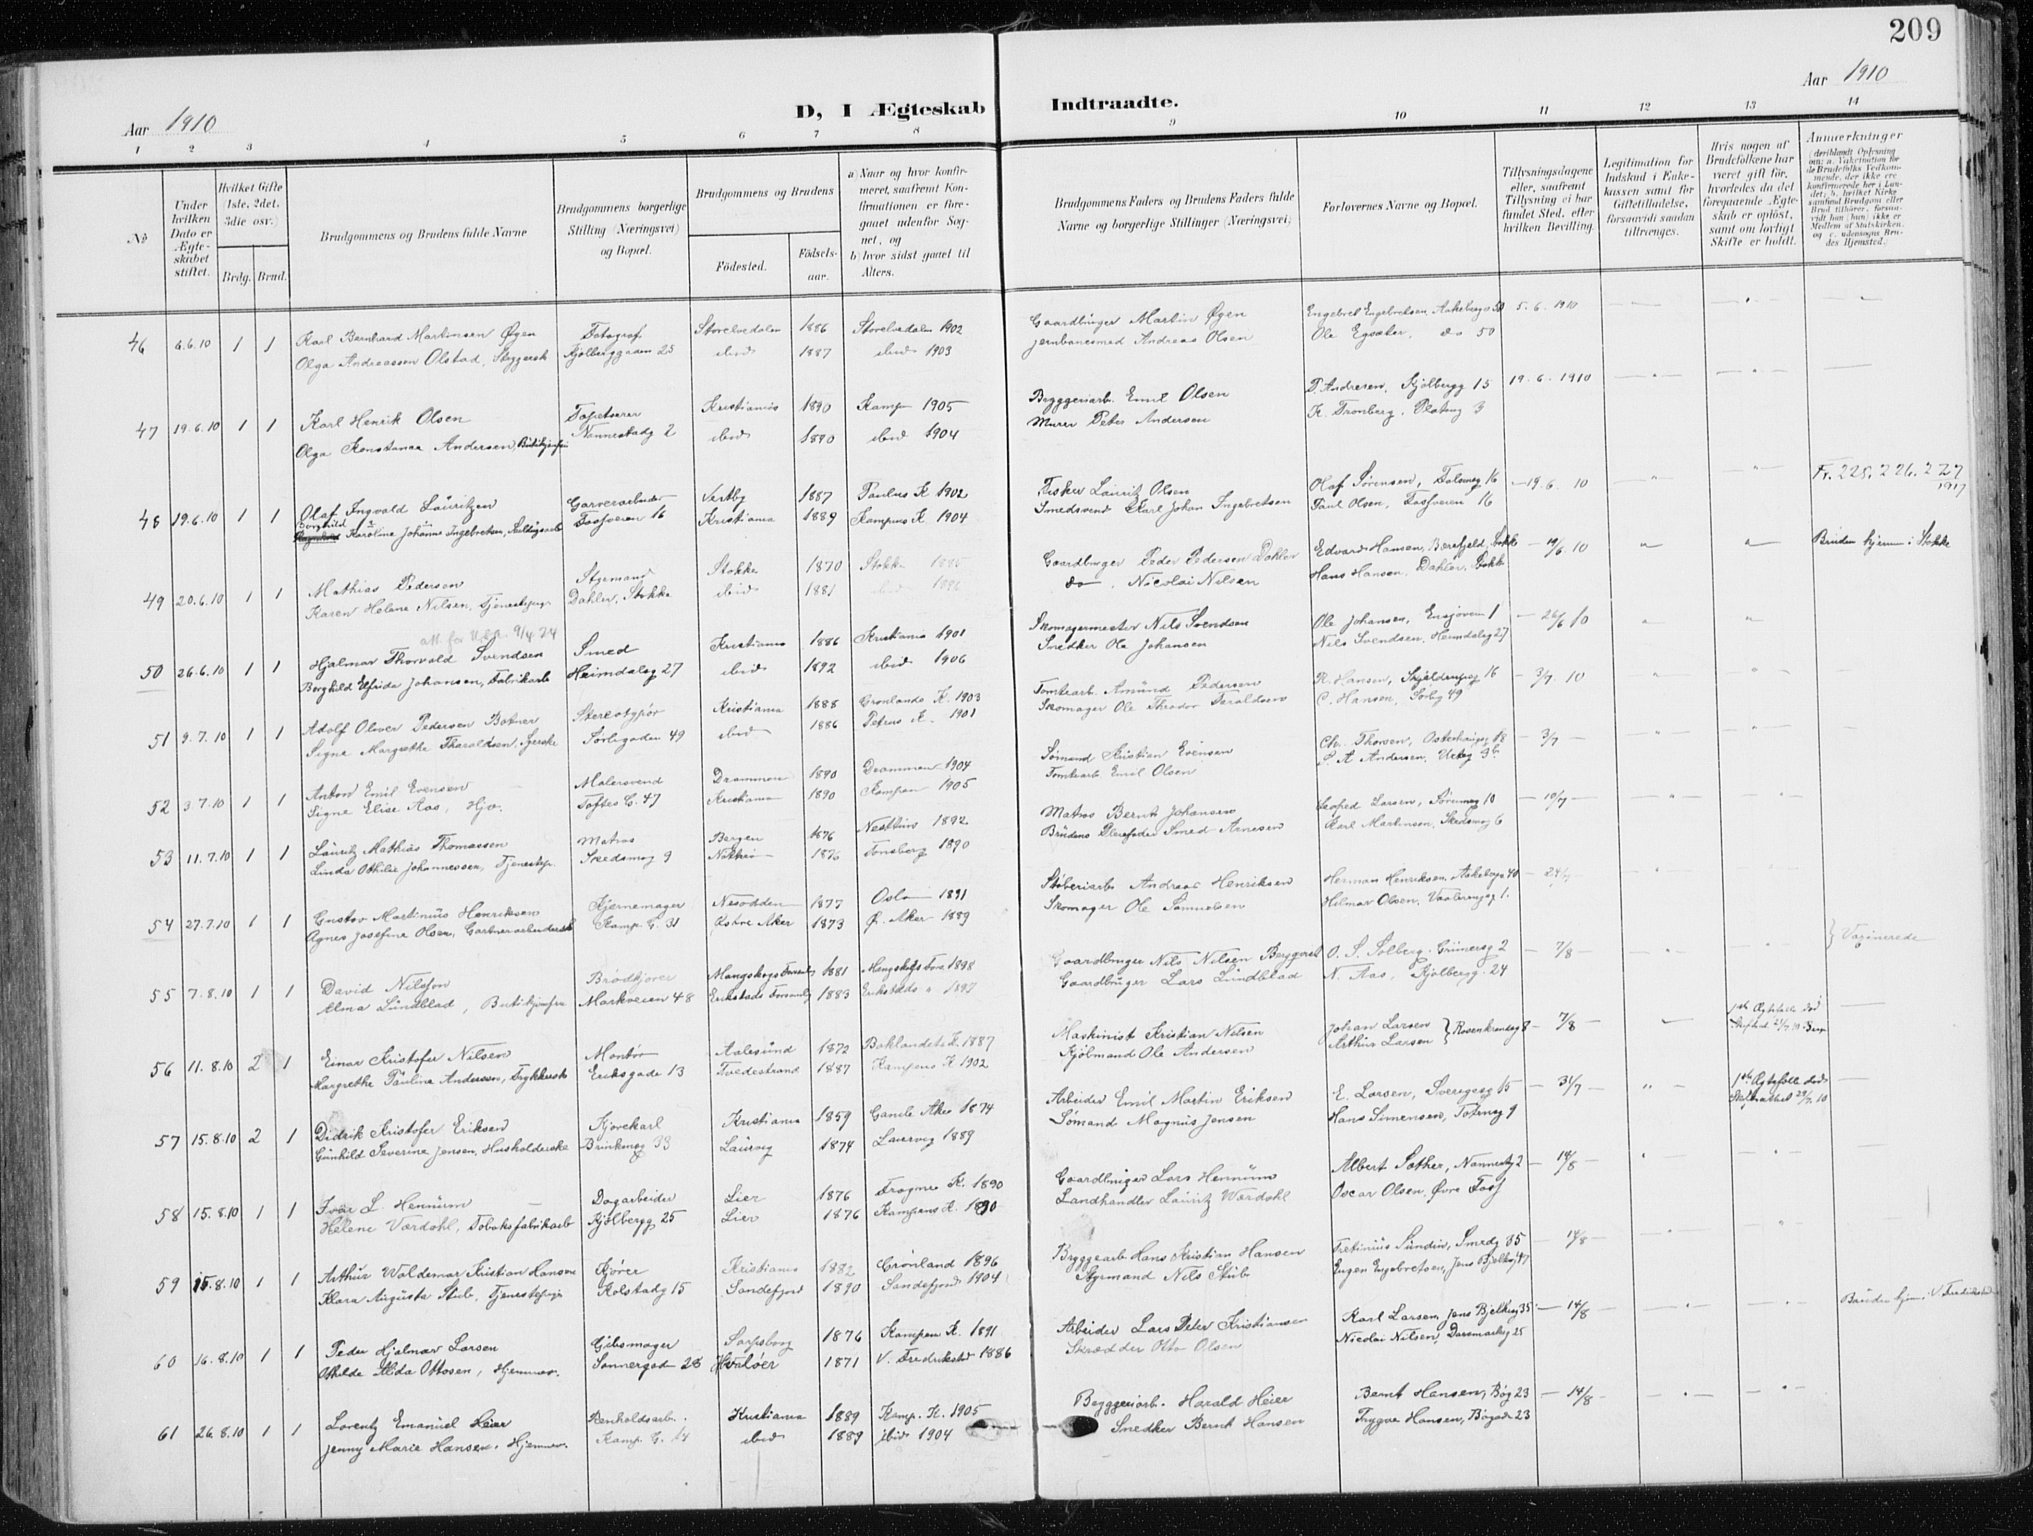 209
Aar 1910
D, I Ægteskab Indtraadte.
Aar 1910
1 2 3 4 5 6 7 8 9 10 11 12 13 14
No
Under hvilken Dato er Ægteskabet stiftet.
Hvilket Gifte (1ste, 2det, 3die osv.)
Brdg. Brud.
Brudgommens og Brudens fulde Navne
Brudgommens borgerlige Stilling (Næringsvei) og Bopæl.
Brudgommens og Brudens
Fødested.
Fødselsaar.
a) Naar og hvor konfirmeret, saafremt Konfirmationen er foregaaet udenfor Sognet, og
b) hvor sidst gaaet til Alters.
Brudgommens Faders og Brudens Faders fulde Navne og borgerlige Stillinger (Næringsvei)
Forlovernes Navne og Bopæl.
Tillysningsdagene eller, saafremt Tillysning ei har fundet Sted, efter hvilken Bevilling.
Legitimation for Indskud i Enkekassen samt for Giftetilladelse, forsaavidt saadan tiltrænges.
Hvis nogen af Brudefolkene har været gift før, hvorledes da det foregaaende Ægteskab er opløst, samt om lovligt Skifte er holdt.
Anmerkninger
46 6.6.10 1 1 Karl Bernhard Martinsen Øgen Fotograf Storelvedalen 1886 Storelvedalen 1902 Gaardbruger Martin Øgen Engebret Engebretsen, Aakebergv 50 5.6.1910
Olga Andreassen Olstad, Kjølberggaten 25 ibid 1887 ibid 1903 Jernbanesmed Andreas Olsen Ole Egsæter, do 50
47 19.6.10 1 1 Karl Henrik Olsen Tapetserer Kristiania 1890 Kampen 1905 Bryggeriarb. Emil Olsen T. Andresen, Kjølbergg 15 19.6.1910
Olga Konstanse Andersen, Nannestadg 2 ibid 1890 ibid 1904 Murer Peter Andersen K. Tronberg, Platoug 3
48 19.6.10 1 1 Olaf Ingvald Lauritzen Garveriarbeider Vestby 1887 Paulus K 1902 Fisker Lauritz Olsen Olaf Sørensen, 16 – 19.6.10 Fr. 225, 226, 227 1917
Borghild Karoline Johanne Ingebretsen, Tosveien 16 Kristiania 1889 Kampens K 1904 Smedsvend Karl Johan Ingebretsen Paul Olsen, Tosveien 16
49 20.6.10 1 1 Mathias Pedersen Styrmand Stokke 1870 Stokke 1885 Gaardbruger Peder Pedersen Dahler Edvard Hansen, Bærefjeld, Stokke – 19/6.10 Bruden hjem: i Stokke
Karen Helene Nilsen, Tjenestepige Dahler, Stokke ibid 1881 ibid 1896 do, Nicolai Nilsen Hans Hansen, Dahler, Stokke
att. for 9/4 24
50 26.6.10 1 1 Hjalmar Thorvald Svendsen Smed Kristiania 1886 Kristiania 1901 Skomagermester Nils Svendsen Ole Johansen, Ensjøveien 1 – 26/6 10
Borghild Elfrida Johansen, Fabrikarb Heimdalsg 27 ibid 1892 ibid 1906 Snedker Ole Johansen Nils Svendsen, Heimdalsg 27
51 9.7.10 1 1 Adolf Oliver Pedersen Botner Stereotypør Kristiania 1888 Grønlands K. 1903 Tomtearb. Amund Pedersen R. Hansen, Skjeldrupsg 16 – 3/7.10
Signe Margrethe Tharaldsen, Syerske Sørligaden 49 ibid 1886 Petrus K. 1901 Skomager Ole Theodor Taraldsen C. Hansen, Sørlig 49
52 3.7.10 1 1 Anton Emil Evensen Malersvend Drammen 1890 Drammen 1904 Sømand Kristian Evensen Chr. Thorsen, Osterhausg 18 – 3/7 –
Signe Elise Aas, Hjv. Toftes G. 47 Kristiania 1890 Kampen 1905 Tomtearb Emil Olsen A Andersen, Urteg
53 11.7.10 1 1 Lauritz Mathias Thomassen Matros Bergen 1876 Nøtterø 1892 Matros Bernt Johansen Leoped Larsen, Sørumsg 10 – 10/7 –
Linda Othilie Johannessen, Tjenestep. Skedsmog 9 Nøtterø 1876 Tønsberg 1890 Brudens Pleiefader Smed Arnesen Karl Martinsen, Skedsmog 6
54 27.7.10 1 1 Gustav Martinius Henriksen Kjernemager Nesodden 1877 Oslo 1891 Støberiarb Andreas Henriksen Herman Henriksen, Aakebergv 40 – 24/7
Agnes Josefine Olsen, Gartnerarbeiderske Kamp. G. 31 Østre Aker 1873 Ø. Aker 1889 Skomager Ole Samuelsen Hilmar Olsen, Vaalerengag 1.
55 7.8.10 1 1 David Nilsson Brødkjører Mangskogs Forsaml 1881 Mangskogs Fors 1898 Gaardbruger Nils Nilsen Berggreit O. S. Solberg, Grünersg 2 – 7/8 – } Vaxinerede
Alma Lundblad, Butikjomfru Markveien 48 Erikstads Forsaml 1883 Erikstads " 1897 Gaardbruger Lars Lundblad N. Aas, Kjølbergg. 24
56 11.8.10 2 1 Einar Kristofer Nilsen Montør Aalesund 1872 Baklandets K. 1887 Maskinist Kristian Nilsen Johan Larsen } Rosenkrandsg 8 – 7/8 – 1ste Ægtefelle død
Margrethe Paulina Andersen, Trykkerske Eriksgade 13 Tvedestrand 1887 Kampens K 1902 Kjøbmand Ole Andersen Arthur Larsen
57 15.8.10 2 1 Didrik Kristofer Eriksen Kjørekarl Kristiania 1859 Gamle Aker 1874 Arbeider Emil Martin Eriksen E. Larsen, Sverigesg 15 – 31/7 – 1ste Ægtefelle død
Gunhild Severine Jensen, Husholderske Brinkensg 33 Laurvig 1874 Laurvig 1889 Sømand Magnus Jensen Hans Simensen, Totensg 9
58 15.8.10 1 1 Ivar L. Hennum Dagarbeider Lier 1876 Frogner K. 1890 Gaardbruger Lars Hennum Albert Sæther, Nannestg 2 – 14/8 –
Helene Værdahl, Tobaksfabrikarb Kjølbergg 25 Lier 1876 Kampens K. 1890 Landhandler Lauritz Wærdahl Oscar Olsen, Øvre Foss
59 15.8.10 1 1 Arthur Waldemar Kristian Hansen Kjører Kristiania 1882 Grønland 1896 Bryggearb Hans Kristian Hansen Fretinius Sundin, Smedg 35 – 14/8 –
Klara Augusta Stub, tjenestepige Kolstadg 15 Sandefjord 1890 Sandefjord 1904 Styrmand Nils Stub Eugen Engebretsen, Jens Bjelkeg 47
60 16.8.10 1 1 Peder Hjalmar Larsen Gibsmager Sarpsborg 1876 Kampen K. 1891 Arbeider Lars Peter Kristiansen Karl Larsen, Jens Bjelkesg 35 – 14/8 Bruden hjem: i V. Fredrikstad
Othilde Alda Ottosen, Hjemmev. Sannergad 28 Hvaløer 1871 V. Fredrikstad 1886 Skrædder Otto Olsen Nicolai Nilsen, Danmarksg 25
61 26.8.10 1 1 Lorentz Emanuel Heier Renholdsarb. Kristiania 1889 Kamp. K. 1905 Bryggeriarb. Harald Heier Bernt Hansen, Bøg 23 – 14/8 –
Jenny Marie Hansen, Hjemmev. Kamp. G. 14 ibid 1889 ibid 1904 Snedker Bernt Hansen Trygve Hansen, Bøgade 23